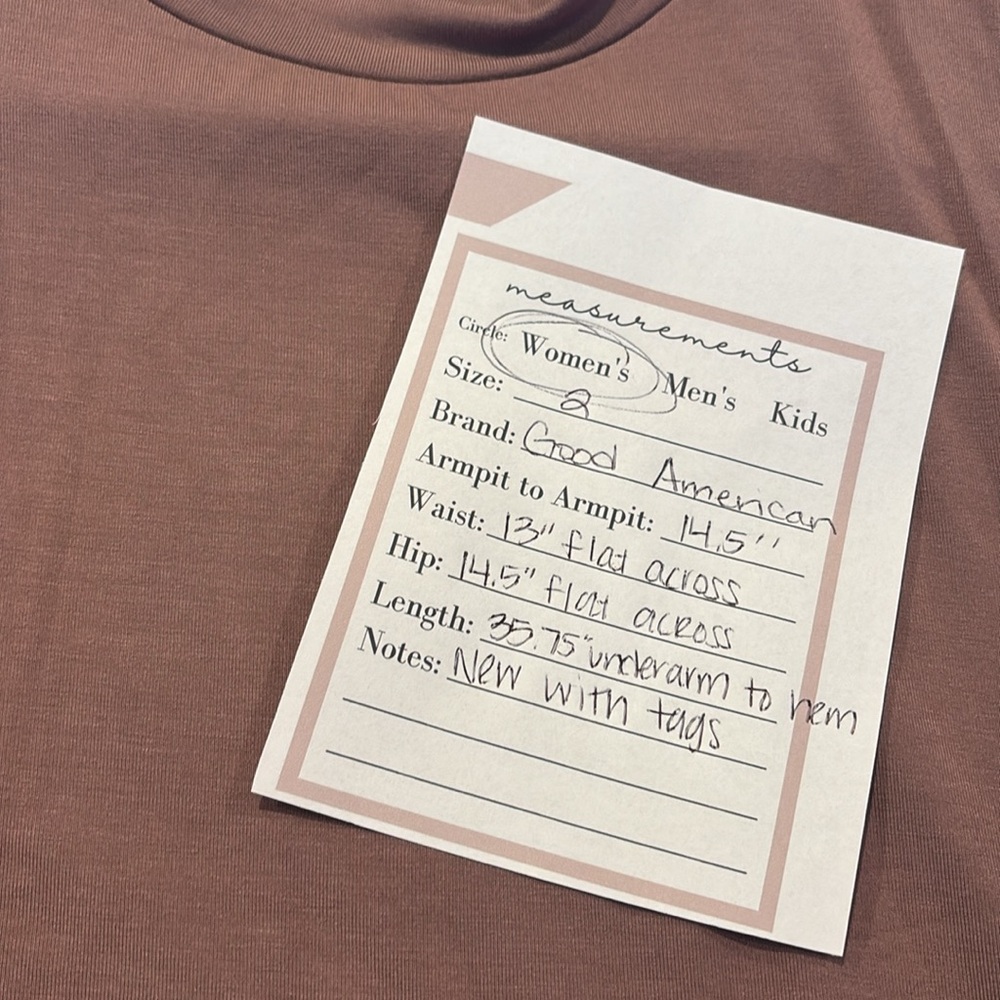 measurements
Circle: Women's Men's Kids
Size: 2
Brand: Good American
Armpit to Armpit: 14.5''
Waist: 13" flat across
Hip: 14.5" flat across
Length: 35.75" underarm to hem
Notes: New with tags